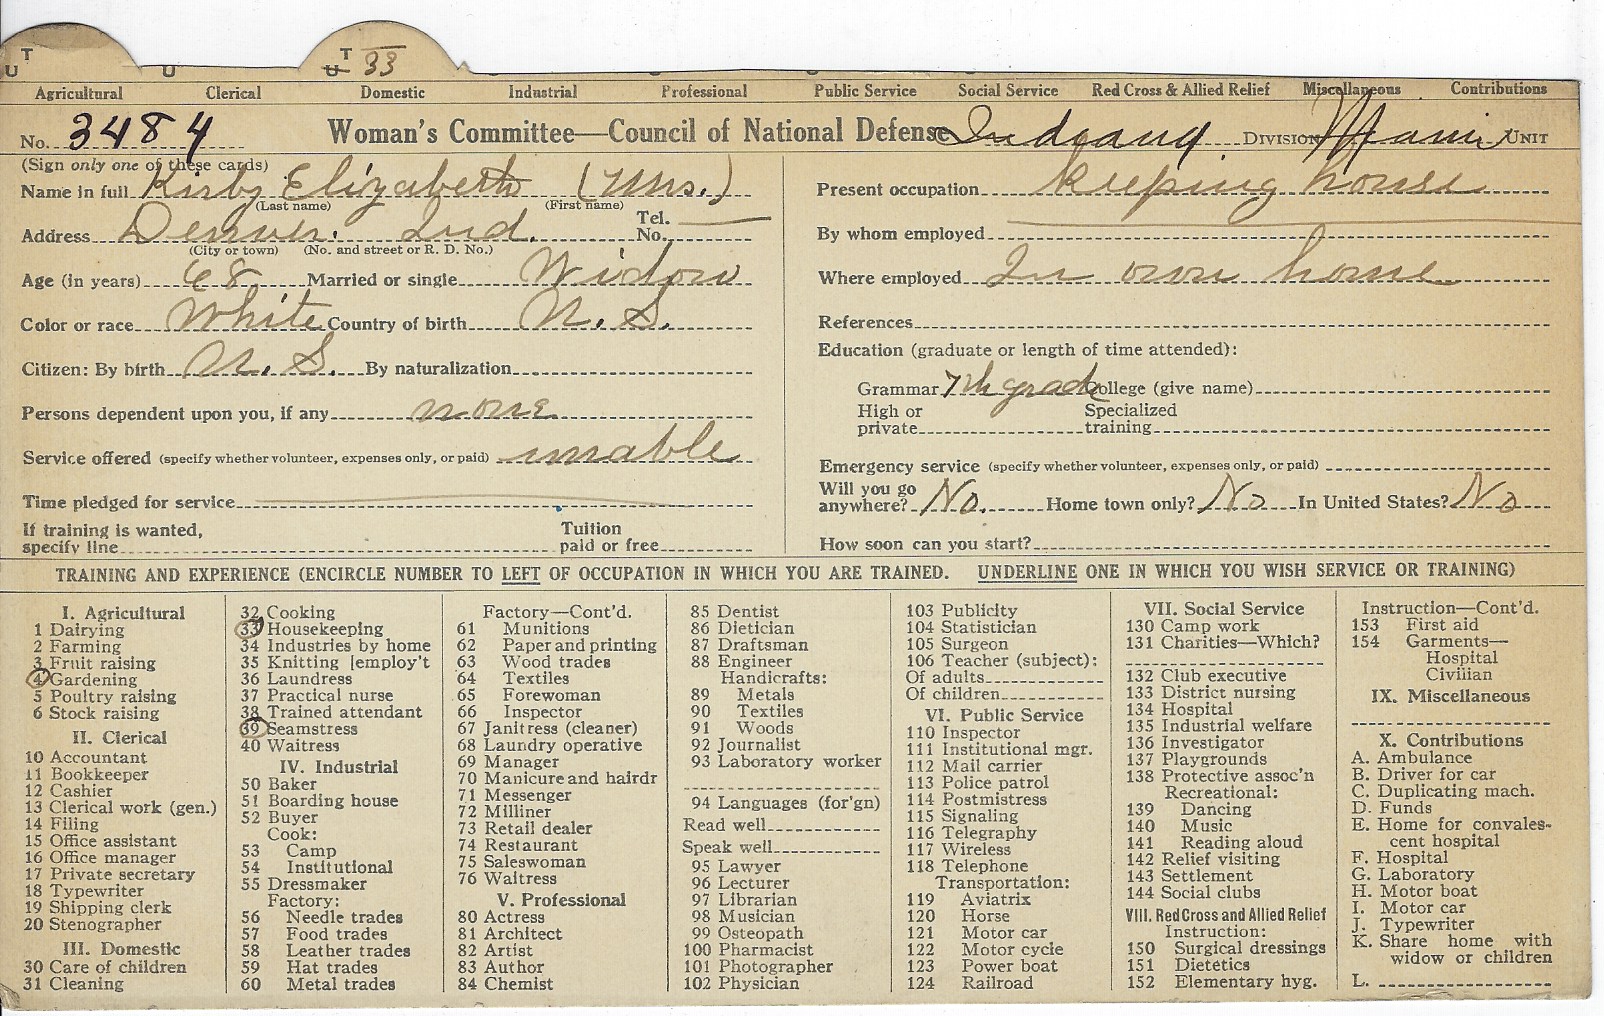 T
U
U
T
U 33
Agricultural Clerical Domestic Industrial Professional Public Service Social Service Red Cross & Allied Relief Miscellaneous Contributions
No. 3484 Woman's Committee—Council of National Defense Indiana DIVISION Miami UNIT
(Sign only one of these cards)
Name in full Kirby Elizabeth (Mrs.)
(Last name) (First name)
Address Denver. Ind. Tel. No.
(City or town) (No. and street or R. D. No.)
Age (in years) 68 Married or single Widow
Color or race White Country of birth U. S.
Citizen: By birth U. S. By naturalization
Persons dependent upon you, if any none
Service offered (specify whether volunteer, expenses only, or paid) unable
Time pledged for service
If training is wanted, specify line Tuition paid or free
Present occupation keeping house
By whom employed
Where employed In own home
References
Education (graduate or length of time attended):
Grammar 7th grade College (give name)
High or private Specialized training
Emergency service (specify whether volunteer, expenses only, or paid)
Will you go anywhere? No. Home town only? No In United States? No
How soon can you start?
TRAINING AND EXPERIENCE (ENCIRCLE NUMBER TO LEFT OF OCCUPATION IN WHICH YOU ARE TRAINED. UNDERLINE ONE IN WHICH YOU WISH SERVICE OR TRAINING)
I. Agricultural
1 Dairying
2 Farming
3 Fruit raising
4 Gardening
5 Poultry raising
6 Stock raising
II. Clerical
10 Accountant
11 Bookkeeper
12 Cashier
13 Clerical work (gen.)
14 Filing
15 Office assistant
16 Office manager
17 Private secretary
18 Typewriter
19 Shipping clerk
20 Stenographer
III. Domestic
30 Care of children
31 Cleaning
32 Cooking
33 Housekeeping
34 Industries by home
35 Knitting [employ't
36 Laundress
37 Practical nurse
38 Trained attendant
39 Seamstress
40 Waitress
IV. Industrial
50 Baker
51 Boarding house
52 Buyer
Cook:
53 Camp
54 Institutional
55 Dressmaker
Factory:
56 Needle trades
57 Food trades
58 Leather trades
59 Hat trades
60 Metal trades
Factory—Cont'd.
61 Munitions
62 Paper and printing
63 Wood trades
64 Textiles
65 Forewoman
66 Inspector
67 Janitress (cleaner)
68 Laundry operative
69 Manager
70 Manicure and hairdr
71 Messenger
72 Milliner
73 Retail dealer
74 Restaurant
75 Saleswoman
76 Waitress
V. Professional
80 Actress
81 Architect
82 Artist
83 Author
84 Chemist
85 Dentist
86 Dietician
87 Draftsman
88 Engineer
Handicrafts:
89 Metals
90 Textiles
91 Woods
92 Journalist
93 Laboratory worker
94 Languages (for'gn)
Read well
Speak well
95 Lawyer
96 Lecturer
97 Librarian
98 Musician
99 Osteopath
100 Pharmacist
101 Photographer
102 Physician
103 Publicity
104 Statistician
105 Surgeon
106 Teacher (subject):
Of adults
Of children
VI. Public Service
110 Inspector
111 Institutional mgr.
112 Mail carrier
113 Police patrol
114 Postmistress
115 Signaling
116 Telegraphy
117 Wireless
118 Telephone
Transportation:
119 Aviatrix
120 Horse
121 Motor car
122 Motor cycle
123 Power boat
124 Railroad
VII. Social Service
130 Camp work
131 Charities—Which?
132 Club executive
133 District nursing
134 Hospital
135 Industrial welfare
136 Investigator
137 Playgrounds
138 Protective assoc'n
Recreational:
139 Dancing
140 Music
141 Reading aloud
142 Relief visiting
143 Settlement
144 Social clubs
VIII. Red Cross and Allied Relief
Instruction:
150 Surgical dressings
151 Dietetics
152 Elementary hyg.
Instruction—Cont'd.
153 First aid
154 Garments—
Hospital
Civilian
IX. Miscellaneous
X. Contributions
A. Ambulance
B. Driver for car
C. Duplicating mach.
D. Funds
E. Home for convales-
cent hospital
F. Hospital
G. Laboratory
H. Motor boat
I. Motor car
J. Typewriter
K. Share home with
widow or children
L.